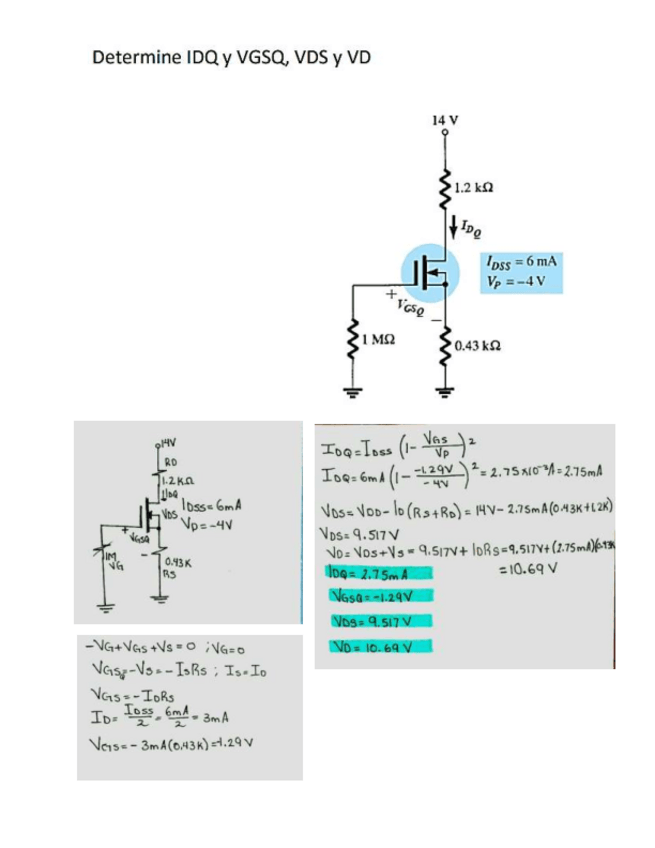 Determine IDQ y VGSQ, VDS y VD
14 V
1.2 kΩ
IDQ
IDSS = 6 mA
VP = −4 V
+
VGSQ
−
1 MΩ
0.43 kΩ
14V
RD
1.2KΩ
IDQ
IDSS= 6mA
VDS
VP= -4V
+
VGSQ
-
1M
VG
0.43K
RS
-VG+VGS+VS=0 ; VG=0
VGS=-VS=-ISRS ; IS=ID
VGS=-IDRS
ID= IDSS/2 = 6mA/2 = 3mA
VGS=-3mA(0.43K)=-1.29V
IDQ=IDSS (1- VGS/VP)²
IDQ=6mA (1- -1.29V/-4V)² = 2.75x10⁻³A=2.75mA
VDS= VDD-ID(RS+RD)= 14V- 2.75mA(0.43K+1.2K)
VDS= 9.517V
VD= VDS+VS= 9.517V+ IDRS=9.517V+(2.75mA)(0.43K
=10.69 V
IDQ= 2.75mA
VGSQ=-1.29V
VDS= 9.517V
VD= 10.69 V